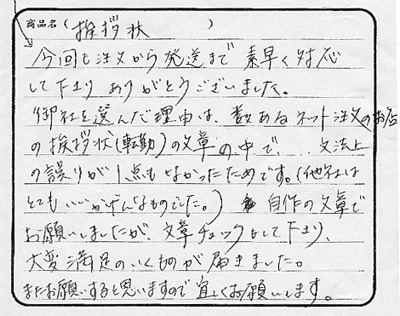 商品名(挨拶状)
今回も注文から発送まで素早く対応
して下さりありがとうございました。
御社を選んだ理由は、数あるネット注文のお店
の挨拶状(転勤)の文章の中で、文法上
の誤りが1点もなかったためです。(他社は
とてもいいかげんなものでした。) 自作の文章で
お願いしましたが、文章チェックもして下さり、
大変満足のいくものが届きました。
またお願いすると思いますので宜しくお願いします。